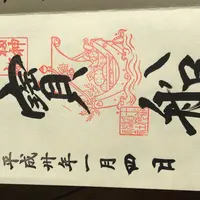 寶船
平成卅年一月四日